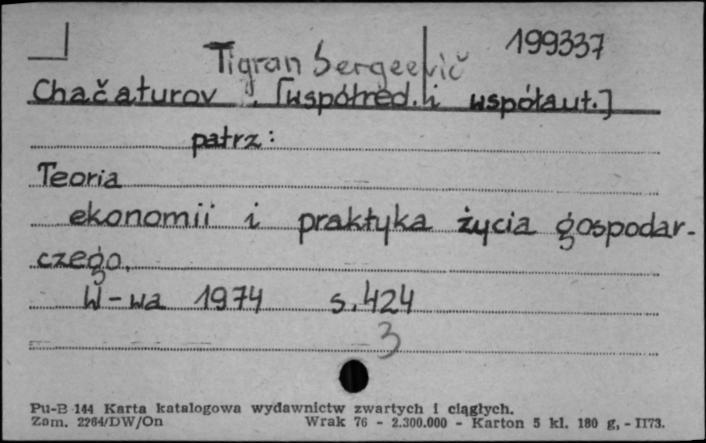 Tigran Sergeevič 199337
Chačaturov . [współred. i współaut.]
patrz:
Teoria
ekonomii i praktyka życia gospodar-
czego.
W-wa 1974 s. 424
3
Pu-B 144 Karta katalogowa wydawnictw zwartych i ciągłych.
Zam. 2264/DW/On Wrak 76 - 2.300.000 - Karton 5 kl. 180 g, - II73.